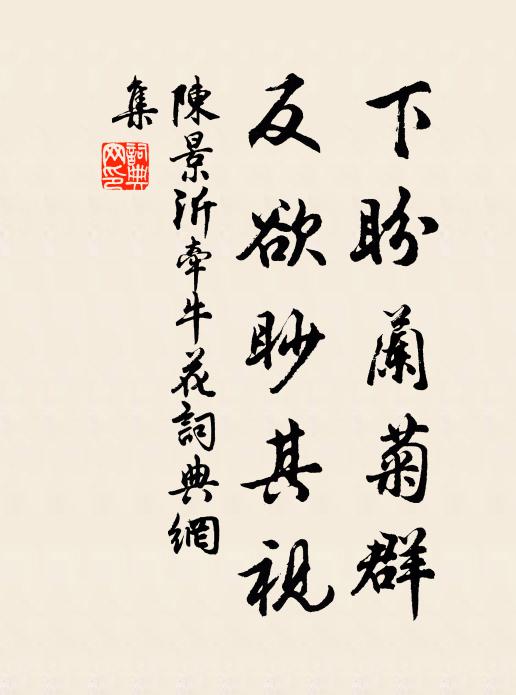 下盼蘭菊群
反欲眇其視
陳景沂牽牛花詞典網
集
詞典
网印